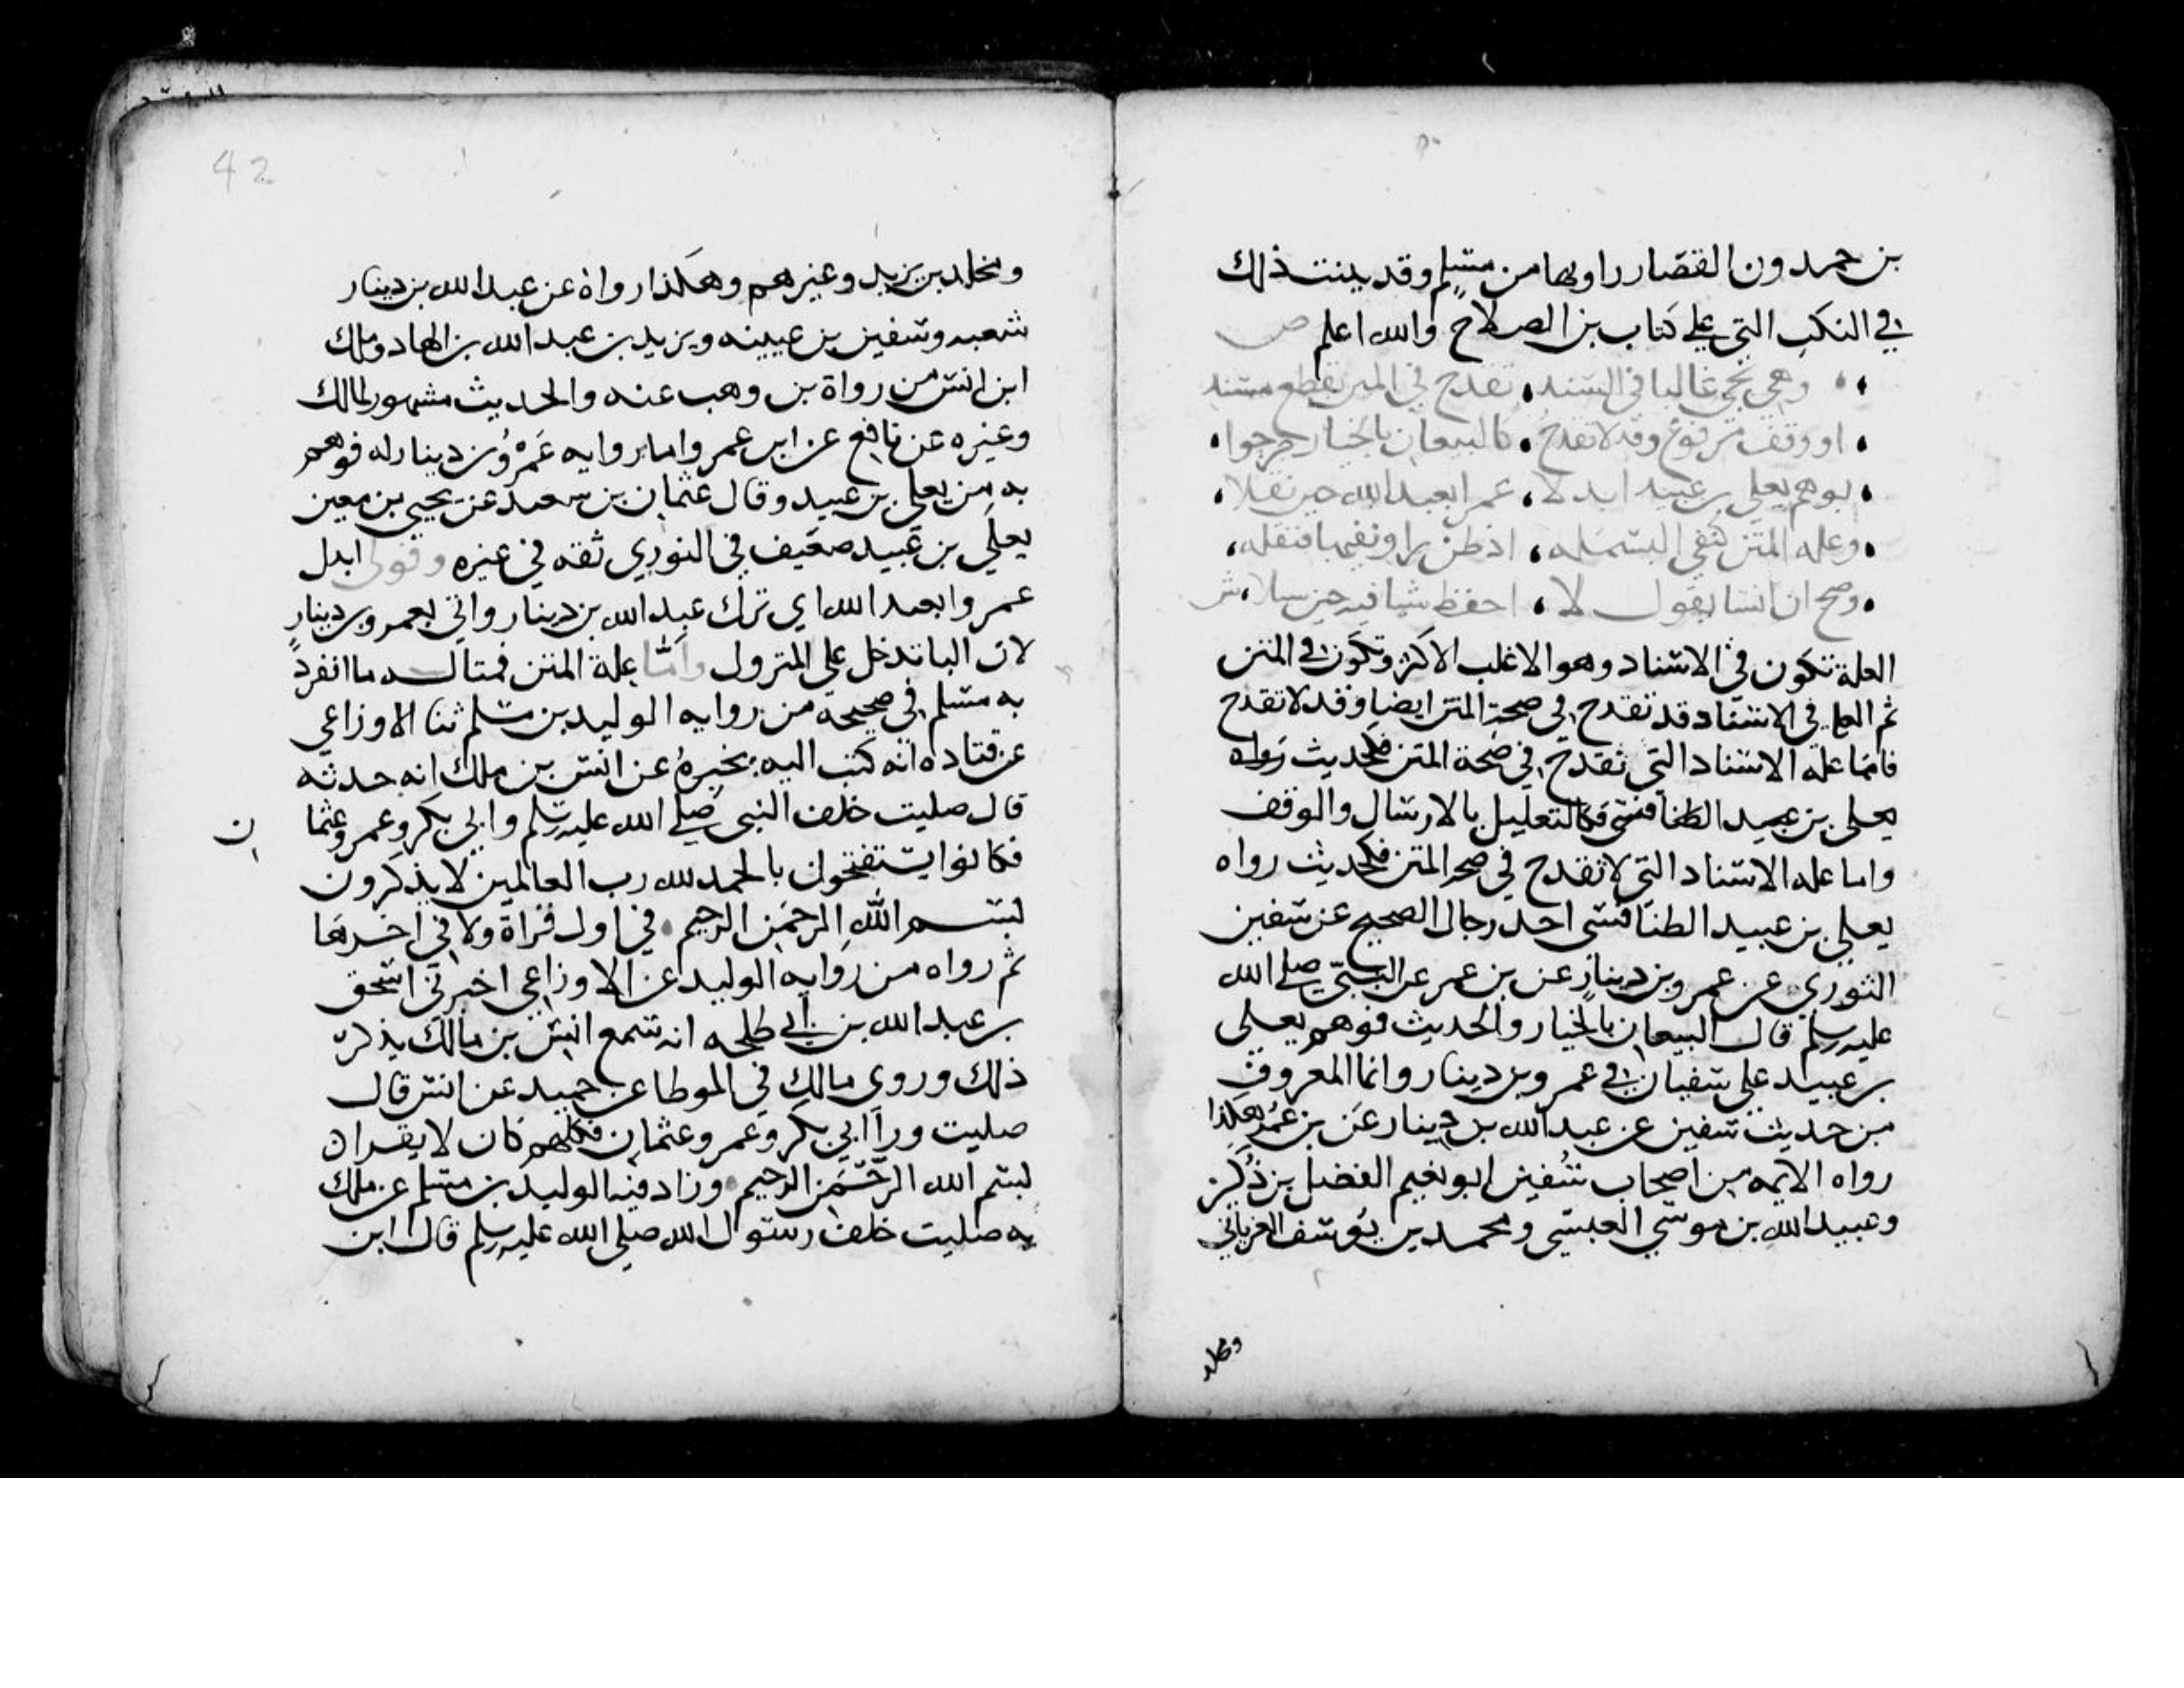 بن حمدون القصار راويها من مسلم وقد بينت ذلك
في النكت التي علي كتاب بن الصلاح والله اعلم ص
وهي تجي غالبا في السند تقدح في المتن بقطع مسند
او وقف مرفوع وقد لا تقدح كالبيعان بالخيار صرحوا
بوهم يعلي بن عبيد ابدلا عمرا بعبد الله حين نقلا
وعله المتن كنفي البسمله اذ ظن راو نفيها فنقله
وصح ان انسا يقول لا احفظ شيا فيه حين سيلا ش
العلة تكون في الاسناد وهو الاغلب الاكثر وتكون في المتن
ثم العلة في الاسناد قد تقدح في صحة المتن ايضا وقد لا تقدح
فاما علة الاسناد التي تقدح في صحة المتن فكالتعليل بالارسال والوقف
واما علة الاسناد التي لا تقدح في صحة المتن فكحديث رواه
يعلي بن عبيد الطنافسي احد رجال الصحيح عن سفين
الثوري عن عمرو بن دينار عن بن عمر عن النبي صلي الله
عليه وسلم قال البيعان بالخيار والحديث فوهم يعلي
بن عبيد علي سفيان في عمرو بن دينار وانما المعروف
من حديث سفين عن عبد الله بن دينار عن بن عمر هكذا
رواه الايمه من اصحاب سفين ابو نعيم الفضل بن دكين
وعبيد الله بن موسي العبسي ومحمد بن يوسف الفريابي
ومخلد
42
ومخلد بن يزيد وغيرهم وهكذا رواه عن عبد الله بن دينار
شعبه وسفين بن عيينه ويزيد بن عبد الله بن الهاد وملك
ابن انس من رواة بن وهب عنه والحديث مشهور لمالك
وغيره عن نافع عن ابن عمر واما روايه عمرو بن دينار له فوهم
به من يعلي بن عبيد وقال عثمان بن سعيد عن يحيي بن معين
يعلي بن عبيد ضعيف في الثوري ثقه في غيره وقولي ابدل
عمروا بعبد الله اي ترك عبد الله بن دينار واتي بعمرو بن دينار
لان البا تدخل علي المتروك واما علة المتن فمثاله ما انفرد
به مسلم في صحيحه من روايه الوليد بن مسلم ثنا الاوزاعي
عن قتاده انه كتب اليه يخبره عن انس بن ملك انه حدثه
قال صليت خلف النبي صلي الله عليه وسلم وابي بكر وعمر وعثما
ن
فكانوا يستفتحون بالحمد لله رب العالمين لا يذكرون
بسم الله الرحمن الرحيم في اول قراة ولا في اخرها
ثم رواه من روايه الوليد عن الاوزاعي اخبرني اسحق
بن عبد الله بن ابي طلحه انه سمع انس بن مالك يذكر
ذلك وروي مالك في الموطا عن حميد عن انس قال
صليت ورا ابي بكر وعمر وعثمان فكلهم كان لا يقرا
بسم الله الرحمن الرحيم وزاد فيه الوليد بن مسلم عن ملك
به صليت خلف رسول الله صلي الله عليه وسلم قال ابن